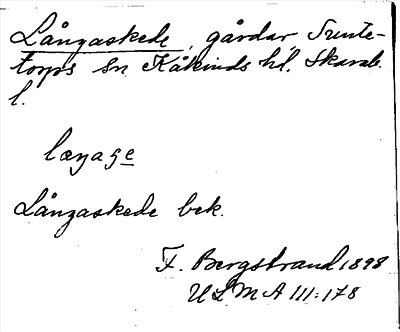 Långaskede, gårdar, Sunte-
torps sn Kåkinds hd. Skarab.
l.
Långaskede bek.
F. Bergstrand 1898
ULMA 111:178